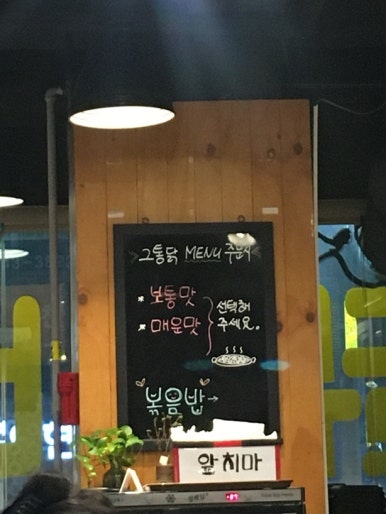 그통닭 MENU 주문시
* 보통맛
* 매운맛
선택해
주세요.
볶음밥 →
앞치마